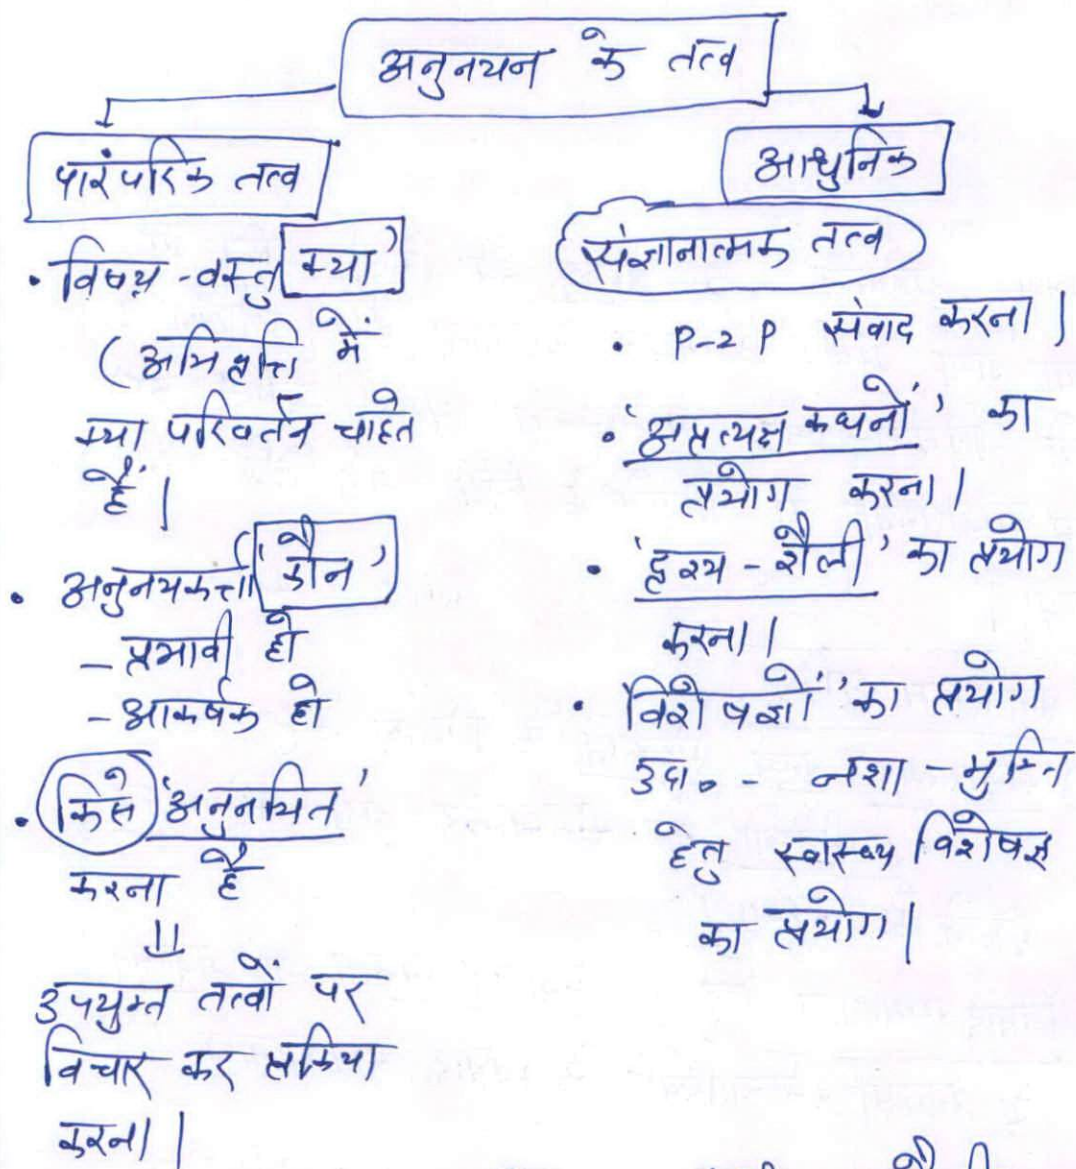 अनुनयन के तत्व
पारंपरिक तत्व
• विषय-वस्तु 'क्या'
(अभिवृत्ति में
क्या परिवर्तन चाहते
हैं।
• अनुनयकर्त्ता 'कौन'
- प्रभावी हो
- आकर्षक हो
• किसे 'अनुनयित'
करना है
उपयुक्त तत्वों पर
विचार कर प्रक्रिया
करना।
आधुनिक
संज्ञानात्मक तत्व
• P-2P संवाद करना।
• 'अप्रत्यक्ष कथनों' का
प्रयोग करना।
• 'दृश्य-शैली' का प्रयोग
करना।
• विशेषज्ञों' का प्रयोग
उदा.- नशा-मुक्ति
हेतु स्वास्थ्य विशेषज्ञ
का प्रयोग।